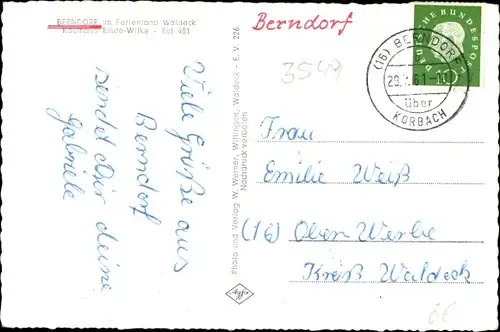 BERNDORF im Ferienland Waldeck
Kaufhaus Emde-Wilke - Ruf 481
Berndorf
3549
DEUTSCHE BUNDESPOST
(16) BERNDORF
über
KORBACH
Viele Grüße aus
Berndorf
sendet Dir deine
Gabriele
Photo und Verlag W. Werner, Willingen, Waldeck - E. V. 226
Nachdruck verboten
Frau
Emilie Weiß
(16) Ober Werbe
Kreis Waldeck